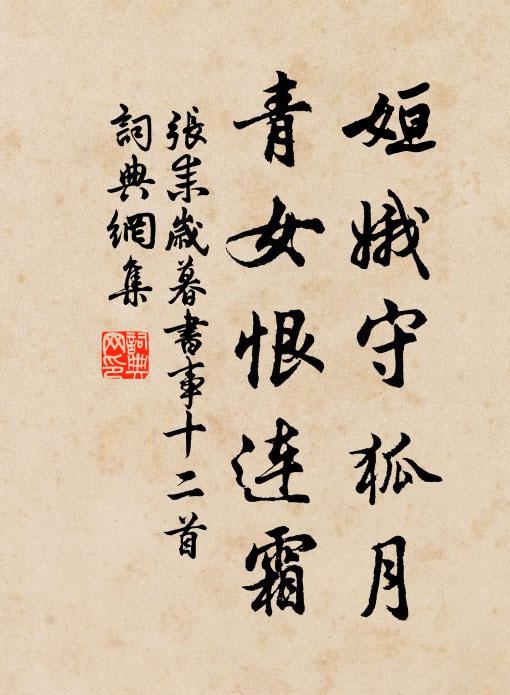 姮娥守狐月
青女恨连霜
張耒歲暮書事十二首
詞典網集
詞典網印